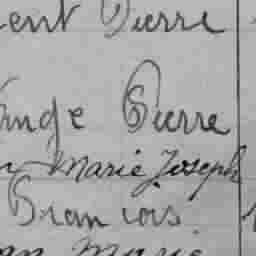 ent Pierre
ange Pierre
Marie Joseph
François
an Marie